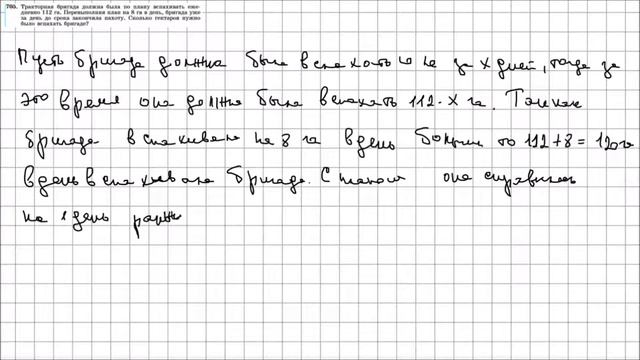 765. Тракторная бригада должна была по плану вспахивать еже-
дневно 112 га. Перевыполняя план на 8 га в день, бригада уже
за день до срока закончила пахоту. Сколько гектаров нужно
было вспахать бригаде?
Пусть бригада должна была вспахать за х дней, тогда за
это время она должна была вспахать 112·х га. Так как
бригада вспахивала на 8 га в день больше то 112+8=120 га
в день вспахивала бригада. С планом она справилась
на 1 день раньш